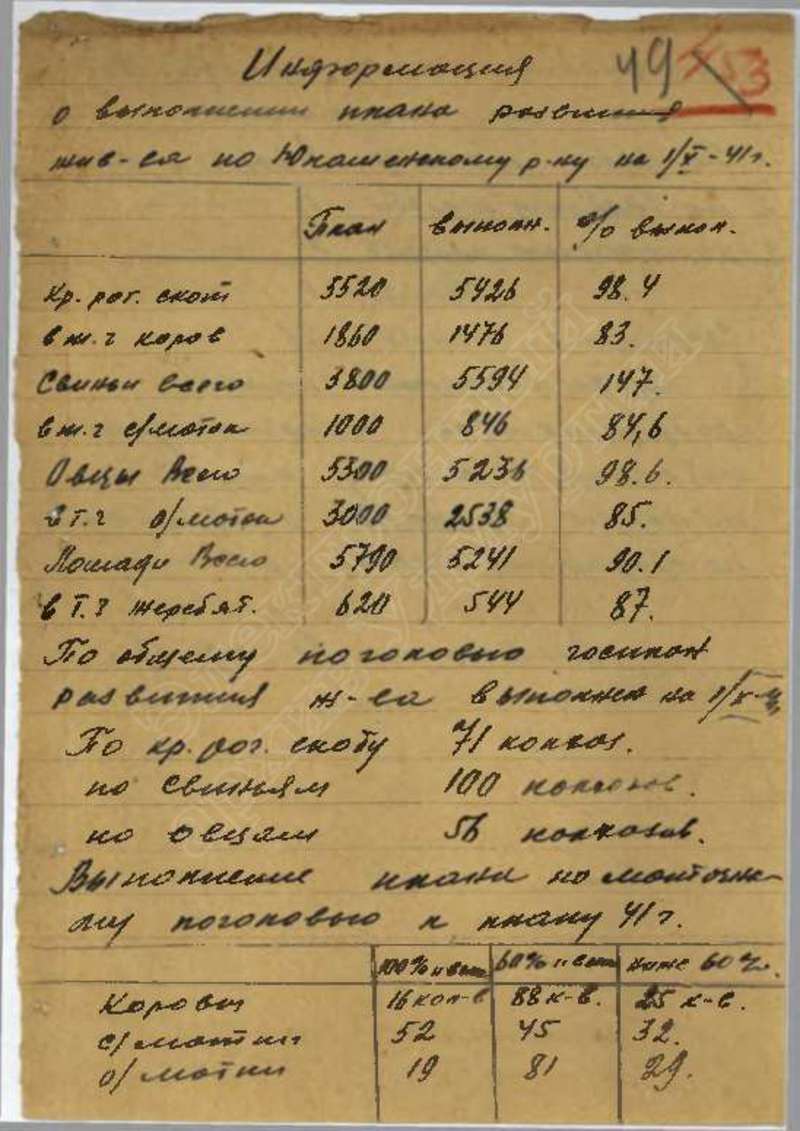 Информация 49 453
о выполнении плана развития
жив-ва по Юкаменскому р-ну на 1/V-41г.
План выполн. % выпол.
Кр. рог. скот 5520 5426 98.4
в т.ч коров 1860 1476 83.
Свиньи всего 3800 5594 147.
в т.ч с/маток 1000 846 84,6
Овцы Всего 5300 5236 98.6.
В т.ч о/маток 3000 2538 85.
Лошади Всего 5790 5241 90.1
в т.ч жеребят. 620 544 87.
По общему поголовью госплан
развития ж-ва выполнен на 1/V-41
По кр. рог. скоту 71 колхоз.
по свиньям 100 колхозов.
по овцам 56 колхозов.
Выполнение плана по маточно-
му поголовью к плану 41 г.
100% и выш 60% и выш ниже 60%.
Коровы 16 кол-в 88 к-в. 25 к-в.
с/матки 52 45 32.
о/матки 19 81 29.